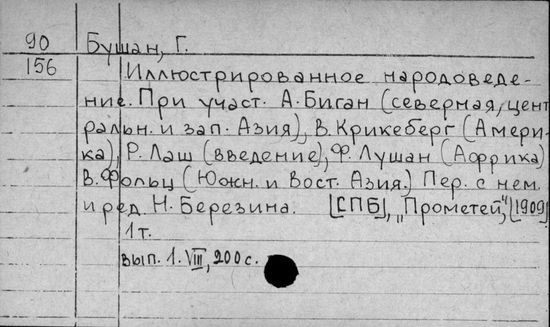 90 Бушан, Г.
156 Иллюстрированное народоведе-
ние. При участ. А. Биган (северная, цент
ральн. и зап. Азия), В. Крикеберг (Амери-
ка), Р. Лаш (введение), Ф. Лушан (Африка)
В. Фольц (Южн. и Вост. Азия.) Пер. с нем.
и ред. Н. Березина. [СПБ], „Прометей," [1909]
1 т.
вып. 1. VIII, 200 с.